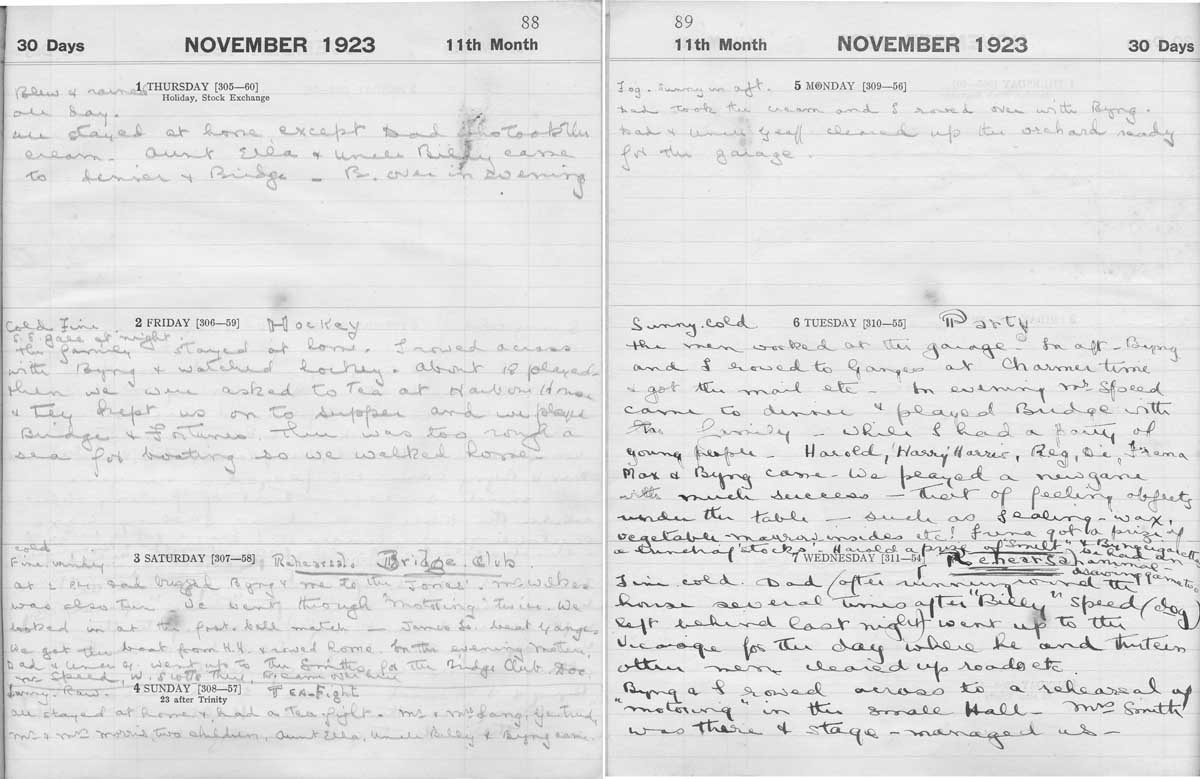 88
30 Days NOVEMBER 1923 11th Month
1 THURSDAY [305—60]
Holiday, Stock Exchange
Blew & rained
all day.
all stayed at home except Dad who took the
cream. Aunt Ella & Uncle Billy came
to dinner & Bridge — B. over in evening
2 FRIDAY [306—59] Hockey
Cold. Fine.
S.E. gale at night.
the family stayed at home. I rowed across
with Byng & watched hockey. About 18 played
then we were asked to Tea at Harbour House
& they kept us on to supper and we played
Bridge & Fortunes. There was too rough a
sea for boating so we walked home.
3 SATURDAY [307—58] Rehearsal. Bridge Club
cold
Fine windy
at 2 P.M. Dad Byng & me to the Jones'. Mr Wilkes
was also there. We went through "Motoring" twice. We
looked in at the foot-ball match — James Is. beat Ganges.
We got the boat from H.H. & rowed home. In the evening Mother,
Dad & Uncle G. went up to the Smiths for the Bridge Club. Doc.
Mr Speed, W. Scotts there, B. came over here
4 SUNDAY [308—57] Tea-Fight
23 after Trinity
Sunny. Raw.
all stayed at home & had a Tea-fight. Mr & Mrs Lang, Gertrude,
Mr & Mrs Morris, two children, Aunt Ella, Uncle Billy & Byng came.
89
11th Month NOVEMBER 1923 30 Days
5 MONDAY [309—56]
Fog. Sunny in aft.
Dad took the cream and I rowed over with Byng.
Dad & Uncle Geoff cleared up the orchard ready
for the garage.
6 TUESDAY [310—55] Party
Sunny. cold
the men worked at the garage. In aft — Byng
and I rowed to Ganges at Charmer time
& got the mail etc — In evening Mr Speed
came to dinner & played Bridge with
the family — while I had a party of
young people — Harold, Harry, Reg, De, Frena
Max & Byng came — We played a new game
with much success — that of feeling objects
under the table — such as Sealing-wax,
vegetable marrow insides etc! Frena got a prize if
a bunch of stocks. Harold a prize of "Smilt" & Byng
7 WEDNESDAY [311—54] Rehearsal
Fine. cold. Dad (after running round the
house several times after "Billy" Speed (dog)
left behind last night) went up to the
Vicarage for the day where he and thirteen
other men cleared up roads etc.
Byng & I rowed across to a rehearsal of
"motoring" in the small Hall — Mrs Smith
was there & stage-managed us —